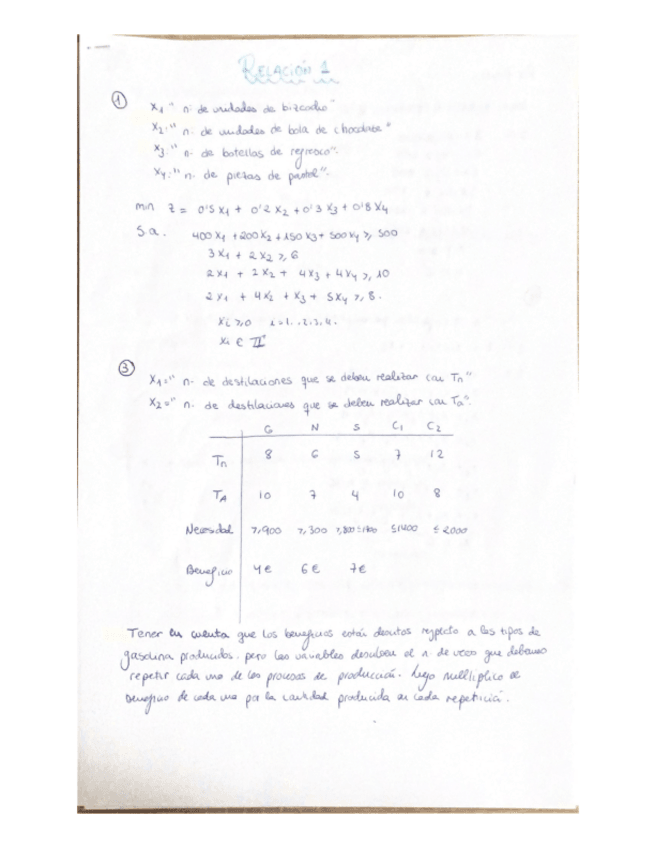 RELACIÓN 1
① X1 " n. de unidades de bizcocho"
X2:" n. de unidades de bola de chocolate"
X3:" n. de botellas de refresco".
X4:" n. de piezas de pastel".
min z = 0'5 X1 + 0'2 X2 + 0'3 X3 + 0'8 X4
S.a. 400 X1 + 200 X2 + 150 X3 + 500 X4 ≥ 500
3 X1 + 2 X2 ≥ 6
2 X1 + 2 X2 + 4 X3 + 4 X4 ≥ 10
2 X1 + 4 X2 + X3 + 5 X4 ≥ 8.
Xi ≥ 0 i=1,.2.3.4.
Xi ∈
③ X1=" n. de destilaciones que se deben realizar con Tn"
X2=" n. de destilaciones que se deben realizar con Ta".
G N S C1 C2
Tn 8 6 5 7 12
TA 10 7 4 10 8
Necesidad ≥900 ≥300 ≥800 ≤1400 ≤2000
Beneficio 4€ 6€ 7€
Tener en cuenta que los beneficios están descritos respecto a los tipos de
gasolina producidos. pero las variables describen el n. de veces que debemos
repetir cada uno de los procesos de producción. Luego multiplico el
beneficio de cada una por la cantidad producida en cada repetición.